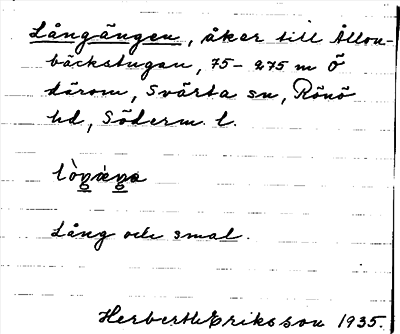 Långängen, åker till Ållon-
bäckstugan, 75-275 m Ö
därom, Svärta sn, Rönö
hd, Söderm. l.
Lång och smal.
Herbert Eriksson 1935.